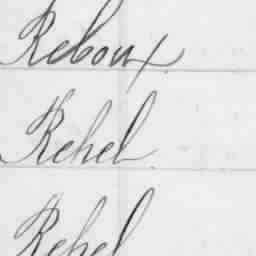 Reboux
Rehel
Rehel